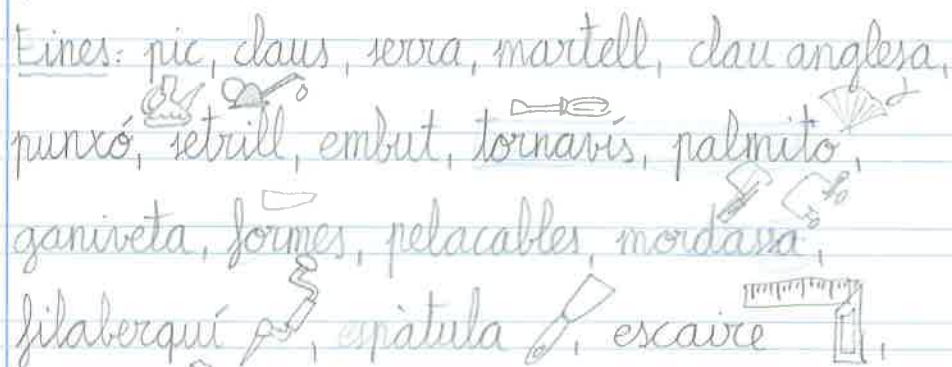 Eines: pic, claus, serra, martell, clau anglesa,
punxó, setrill, embut, tornavís, palmito,
ganiveta, formes, pelacables, mordassa,
filaberquí, espàtula, escaire,